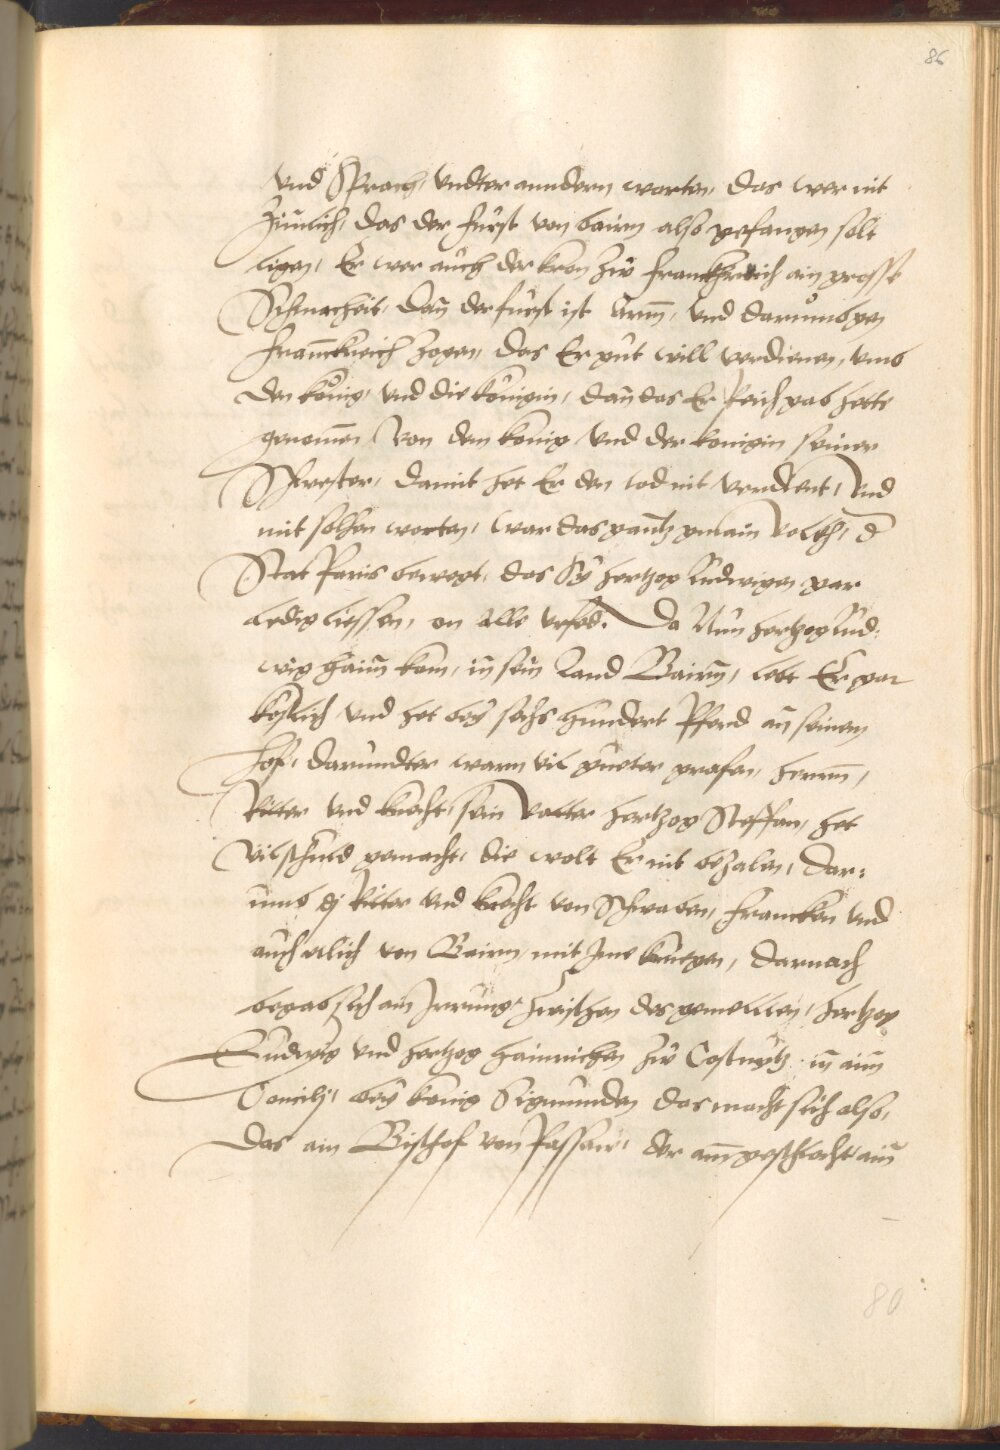 86
Und Sprach, Undter anndern worten, das wer nit
Zimlich, das der Fürst von bairn also gefangen solt
ligen, Er wer auch der kron zw Franckhreich ain grosse
Schmacheit, dan̄ der fürst ist Arm̄, und darumb gen
Franckreich zogen, das Er gut will verdienen, umb
den König, und die Königin, dan̄ das Er Reich gab hette
genomen Von dem König und der Königin seiner
Schwester, damit het Er den tod nit verdient, Und
mit solhen worten, war das gantz gmain Volckh, d
Stat Paris bewegt, das Sy hertzog Ludwigen gar
ledig liessen, on alle urfed. Da Nun hertzog Lud:
wig haim̄ kam, in sein Land Bairn̄, lebt Er gar
köstlich und het bey sechs hundert Pferd an̄ seinem
hof, darundter warn vil gueter grafen, herrn̄,
Ritter und knecht, sein Vatter hertzog Steffan, het
Vil schuld gemacht, die wolt Er nit bezalen, dar:
umb die Ritter und knecht von Schwaben, Francken und
auch etlich von Bairn, mit Ime kriegen, darnach
begab sich ain Irrung zwischen des gemellten, hertzog
Ludwig und hertzog Hainrichen zw Costnytz in aim̄
Concilj, bey König Sigmunden das macht sich also,
das ain Bischof von Passaw, der am̄ geschlecht ain̄
80